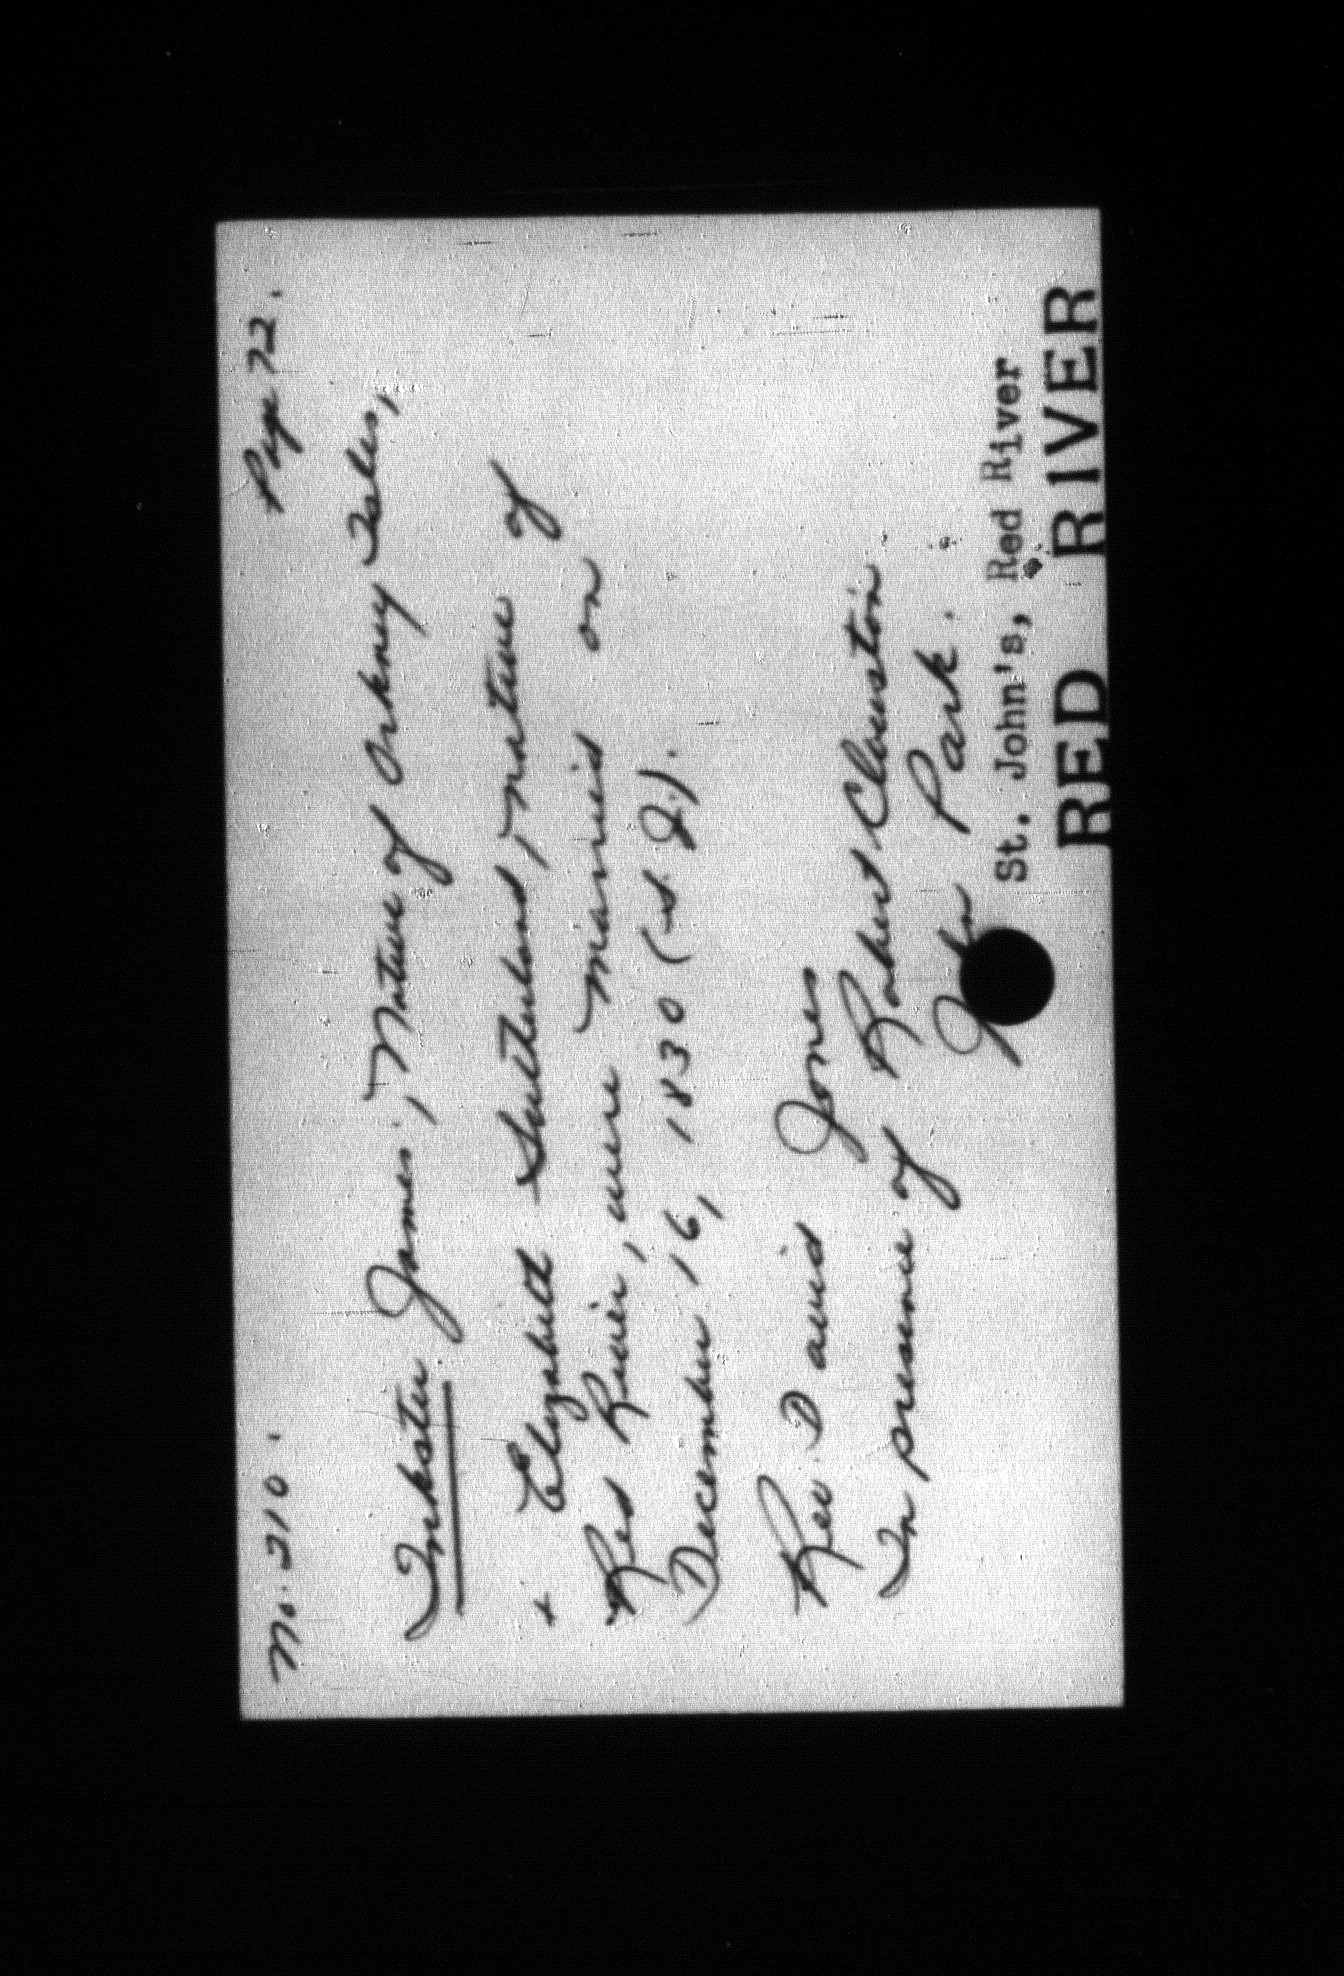 No. 210. Page 72.
Inkster James, Native of Orkney Isles,
+ Elizabeth Sutherland, Native of
Red River, were married on
December 16, 1830 (S. J.).
Rev. David Jones
In presence of Robert Clouston
John Park.
St. John's, Red River
RED RIVER